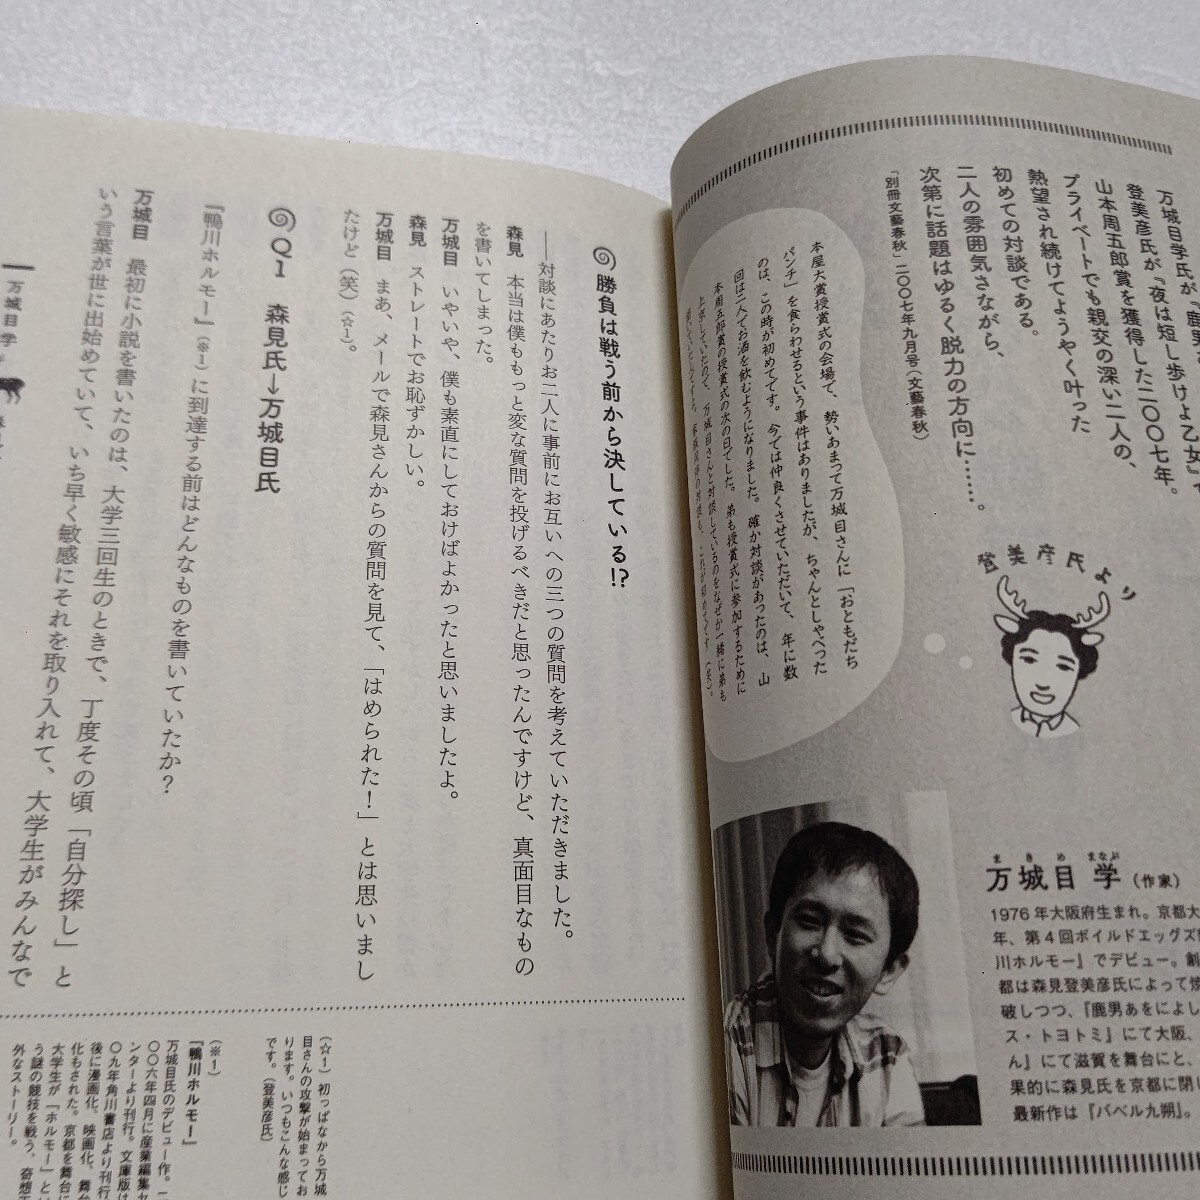 万城目学氏が『鹿男
登美彦氏が『夜は短し歩けよ乙女』で
山本周五郎賞を獲得した二〇〇七年。
プライベートでも親交の深い二人の、
熱望され続けてようやく叶った
初めての対談である。
二人の雰囲気さながら、
次第に話題はゆるく脱力の方向に……。
「別冊文藝春秋」二〇〇七年九月号(文藝春秋)
登美彦氏より
本屋大賞授賞式の会場で、勢いあまって万城目さんに「おともだち
パンチ」を食らわせるという事件はありましたが、ちゃんとしゃべった
のは、この時が初めてです。今では仲良くさせていただいて、年に数
回は二人でお酒を飲むようになりました。確か対談があったのは、山
本周五郎賞の授賞式の次の日でした。弟も授賞式に参加するために
上京していたので、万城目さんと対談しているのをなぜか一緒に弟も
まきめ まなぶ
万城目 学(作家)
1976年大阪府生まれ。京都大
年、第4回ボイルドエッグズ
川ホルモー』でデビュー。創
都は森見登美彦氏によって焼
破しつつ、『鹿男あをによし
ス・トヨトミ』にて大阪、
ん』にて滋賀を舞台にと、
果的に森見氏を京都に閉じ
最新作は『バベル九朔』。
勝負は戦う前から決している!?
――対談にあたりお二人に事前にお互いへの三つの質問を考えていただきました。
森見 本当は僕ももっと変な質問を投げるべきだと思ったんですけど、真面目なもの
を書いてしまった。
万城目 いやいや、僕も素直にしておけばよかったと思いましたよ。
森見 ストレートでお恥ずかしい。
万城目 まあ、メールで森見さんからの質問を見て、「はめられた!」とは思いまし
たけど(笑)(☆1)。
Q1 森見氏→万城目氏
『鴨川ホルモー』(※1)に到達する前はどんなものを書いていたか?
万城目 最初に小説を書いたのは、大学三回生のときで、丁度その頃「自分探し」と
いう言葉が世に出始めていて、いち早く敏感にそれを取り入れて、大学生がみんなで
万城目学
(☆1)初っぱなから万城
目さんの攻撃が始まってお
ります。いつもこんな感じ
です。(登美彦氏)
(※1)
『鴨川ホルモー』
万城目氏のデビュー作。二
〇〇六年四月に産業編集セ
ンターより刊行。文庫版は
〇九年角川書店より刊行
後に漫画化、映画化、舞台
化もされた。京都を舞台に
大学生が「ホルモー」とい
う謎の競技を戦う、奇想
外なストーリー。